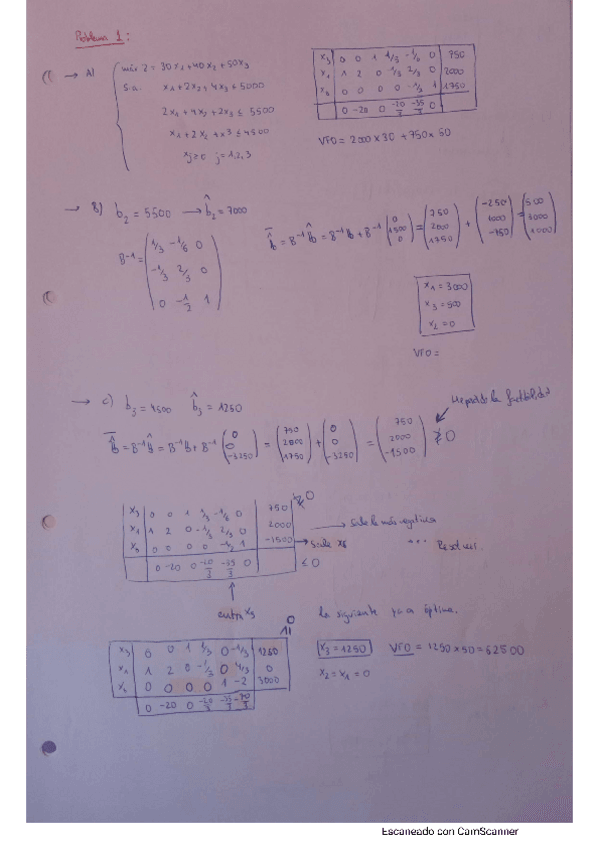 Problema 1:
A) máx Z = 30x1 + 40x2 + 50x3
s.a. x1 + 2x2 + 4x3 ≤ 5000
2x1 + 4x2 + 2x3 ≤ 5500
x1 + 2x2 + x3 ≤ 4500
xj ≥ 0 j = 1,2,3
x3 0 0 1 1/3 -1/6 0 750
x1 1 2 0 -1/3 2/3 0 2000
0 0 0 0 -1/2 1 1750
0 -20 0 -20/3 -35/3 0
VFO = 2000 x 30 + 750 x 50
→ B) b2 = 5500 → b̂2 = 7000
B-1 = (1/3 -1/6 0
-1/3 2/3 0
0 -1/2 1)
= B-1 b̂ = B-1 b + B-1 (0 1500 0) = (750 2000 1750) + (-250 1000 -750) = (500 3000 1000)
x1 = 3000
x3 = 500
x2 = 0
VFO =
→ c) b3 = 4500 b̂3 = 1250
= B-1 b̂ = B-1 b + B-1 (0 0 -3250) = (750 2000 1750) + (0 0 -3250) = (750 2000 -1500) ≱ 0
la factibilidad
x3 0 0 1 1/3 -1/6 0 750 ≱ 0
x1 1 2 0 -1/3 2/3 0 2000 → Sale la más negativa
0 0 0 0 -1/2 1 -1500 → Sale x6 ... Resolver.
0 -20 0 -20/3 -35/3 0 ≤ 0
entra x5
la siguiente ya es óptima.
x3 0 0 1 1/3 0 -1/3 1250
x1 1 2 0 -1/3 0 4/3 0
0 0 0 0 1 -2 3000
0 -20 0 -20/3 -35/3 -70/3
x3 = 1250 VFO = 1250 x 50 = 62500
x2 = x1 = 0
Escaneado con CamScanner